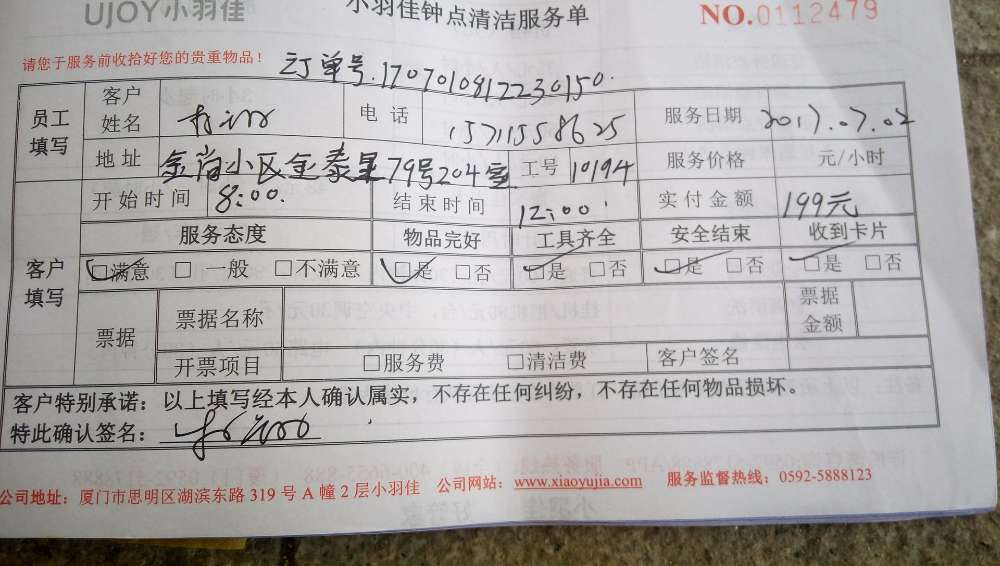 UJOY小羽佳 小羽佳钟点清洁服务单 NO.0112479
请您于服务前收拾好您的贵重物品！ 订单号.1707010812230150.
员工填写 客户姓名 电话 15711558625 服务日期 2017.07.02
地址 金尚小区金泰里79号204室 工号 10194 服务价格 元/小时
开始时间 8:00. 结束时间 12:00 实付金额 199元
客户填写 服务态度 物品完好 工具齐全 安全结束 收到卡片
□满意 □一般 □不满意 □是 □否 □是 □否 □是 □否 □是 □否
票据 票据名称 票据金额
开票项目 □服务费 □清洁费 客户签名
客户特别承诺：以上填写经本人确认属实，不存在任何纠纷，不存在任何物品损坏。
特此确认签名：
公司地址：厦门市思明区湖滨东路 319 号 A 幢 2 层小羽佳 公司网站：www.xiaoyujia.com 服务监督热线：0592-5888123